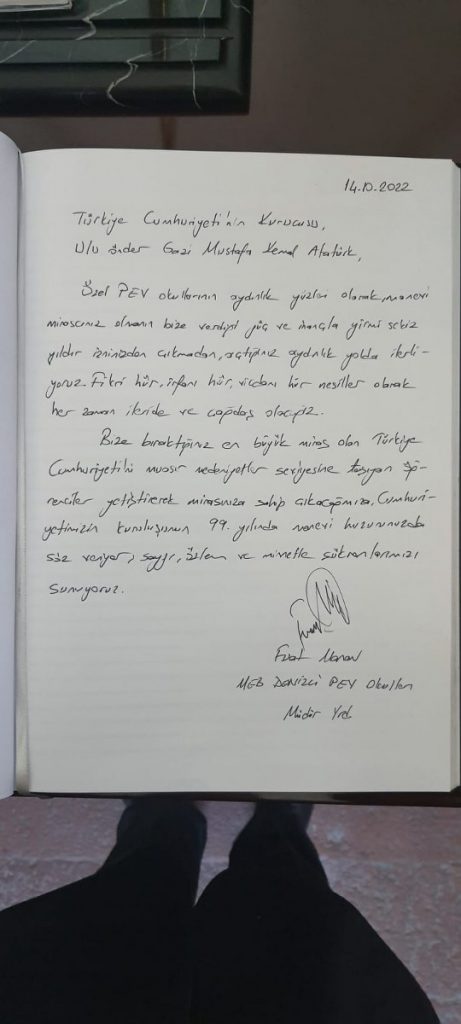 14.10.2022
Türkiye Cumhuriyeti'nin Kurucusu,
Ulu Önder Gazi Mustafa Kemal Atatürk,
Özel PEV okullarının aydınlık yüzleri olarak, manevi
mirasçınız olmanın bize verdiği güç ve inançla yirmi sekiz
yıldır izinizden çıkmadan, açtığınız aydınlık yolda ilerli-
yoruz. Fikri hür, irfanı hür, vicdanı hür nesiller olarak
her zaman ileride ve çağdaş olacağız.
Bize bıraktığınız en büyük miras olan Türkiye
Cumhuriyeti'ni muasır medeniyetler seviyesine taşıyan öğ-
renciler yetiştirerek mirasınıza sahip çıkacağımıza, Cumhuri-
yetimizin kuruluşunun 99. yılında manevi huzurunuzda
söz veriyor, saygı, özlem ve minnetle şükranlarımızı
sunuyoruz.
Fuat
MEB Denizli PEV Okulları
Müdür Yrd.